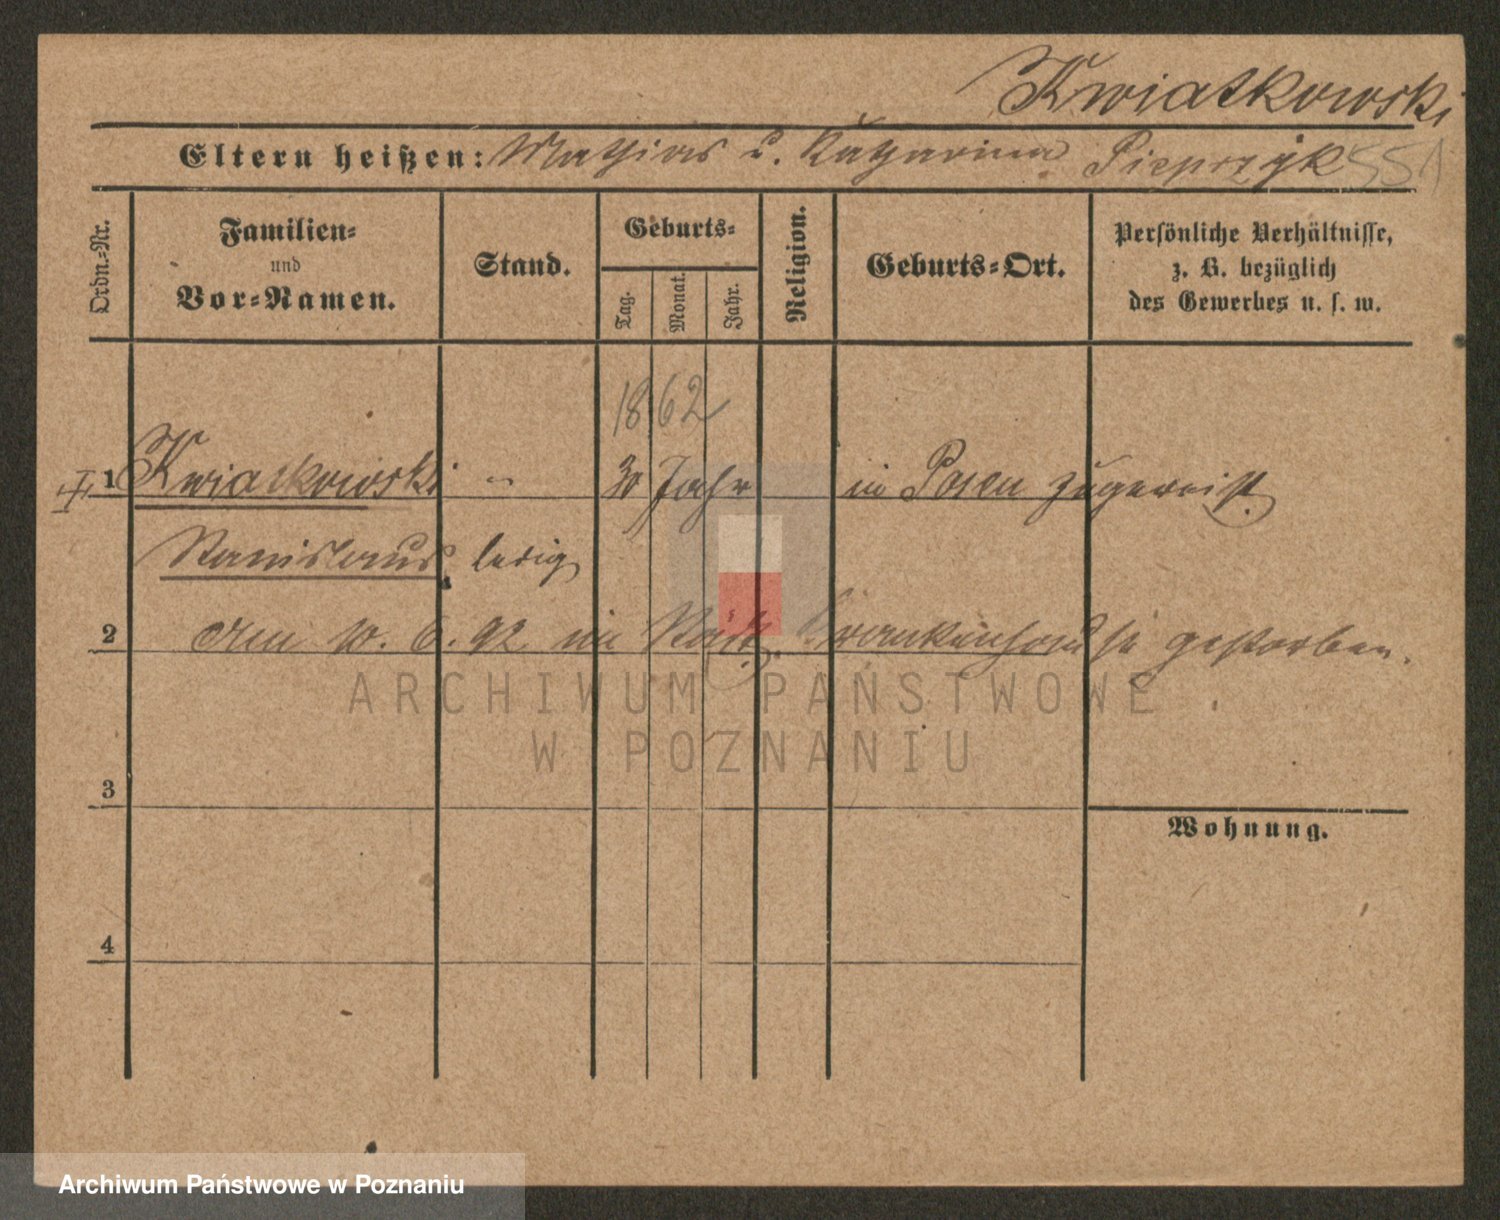 Kwiatkowski
Eltern heißen: Mathias u. Katharina Pieprzyk 551
Ordn.-Nr.
Familien-
und
Vor-Namen.
Stand.
Geburts-
Tag.
Monat.
Jahr.
Religion.
Geburts-Ort.
Persönliche Verhältnisse,
z. B. bezüglich
des Gewerbes u. s. w.
1862
1 Kwiatkowski - 30 Jahr in Posen zugereist.
Stanislaus ledig
2 Am 10. 6. 92 im Städt. Krankenhause gestorben.
ARCHIWUM PAŃSTWOWE
W POZNANIU
3
Wohnung.
4
Archiwum Państwowe w Poznaniu